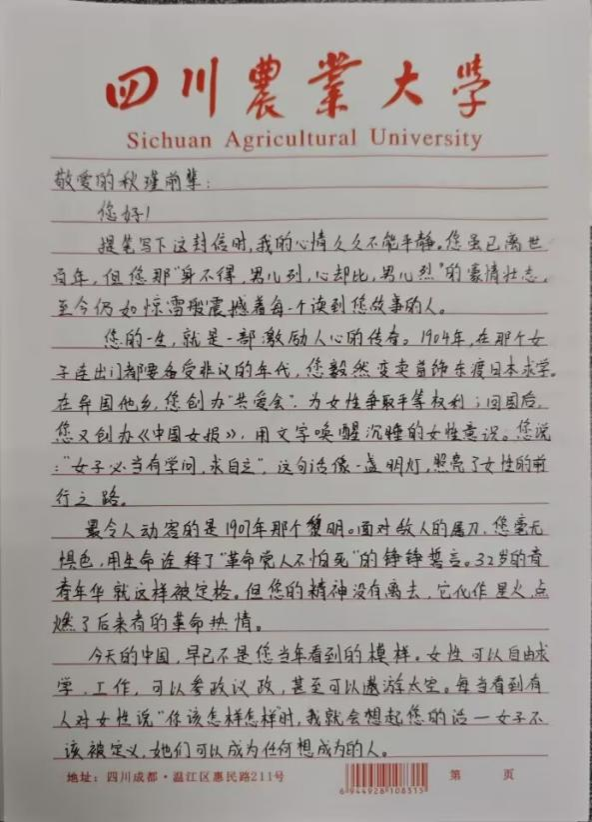 四川農業大學
Sichuan Agricultural University
敬爱的秋瑾前辈：
您好！
提笔写下这封信时,我的心情久久不能平静。您虽已离世
百年，但您那"身不得，男儿列，心却比，男儿烈"的豪情壮志，
至今仍如惊雷般震撼着每一个读到您故事的人。
您的一生，就是一部激励人心的传奇。1904年，在那个女
子连出门都要备受非议的年代，您毅然变卖首饰东渡日本求学。
在异国他乡，您创办"共爱会"，为女性争取平等权利；回国后，
您又创办《中国女报》，用文字唤醒沉睡的女性意识。您说
："女子必当有学问，求自立"，这句话像一盏明灯，照亮了女性的前
行之路。
最令人动容的是1907年那个黎明。面对敌人的屠刀，您毫无
惧色，用生命诠释了"革命党人不怕死"的铮铮誓言。32岁的青
春年华就这样被定格。但您的精神没有离去，它化作星火，点
燃了后来者的革命热情。
今天的中国，早已不是您当年看到的模样。女性可以自由求
学、工作，可以参政议政，甚至可以遨游太空。每当看到有
人对女性说"你该怎样怎样"时，我就会想起您的话一女子不
该被定义，她们可以成为任何想成为的人。
地址：四川成都·温江区惠民路211号
6944928108313
第 页